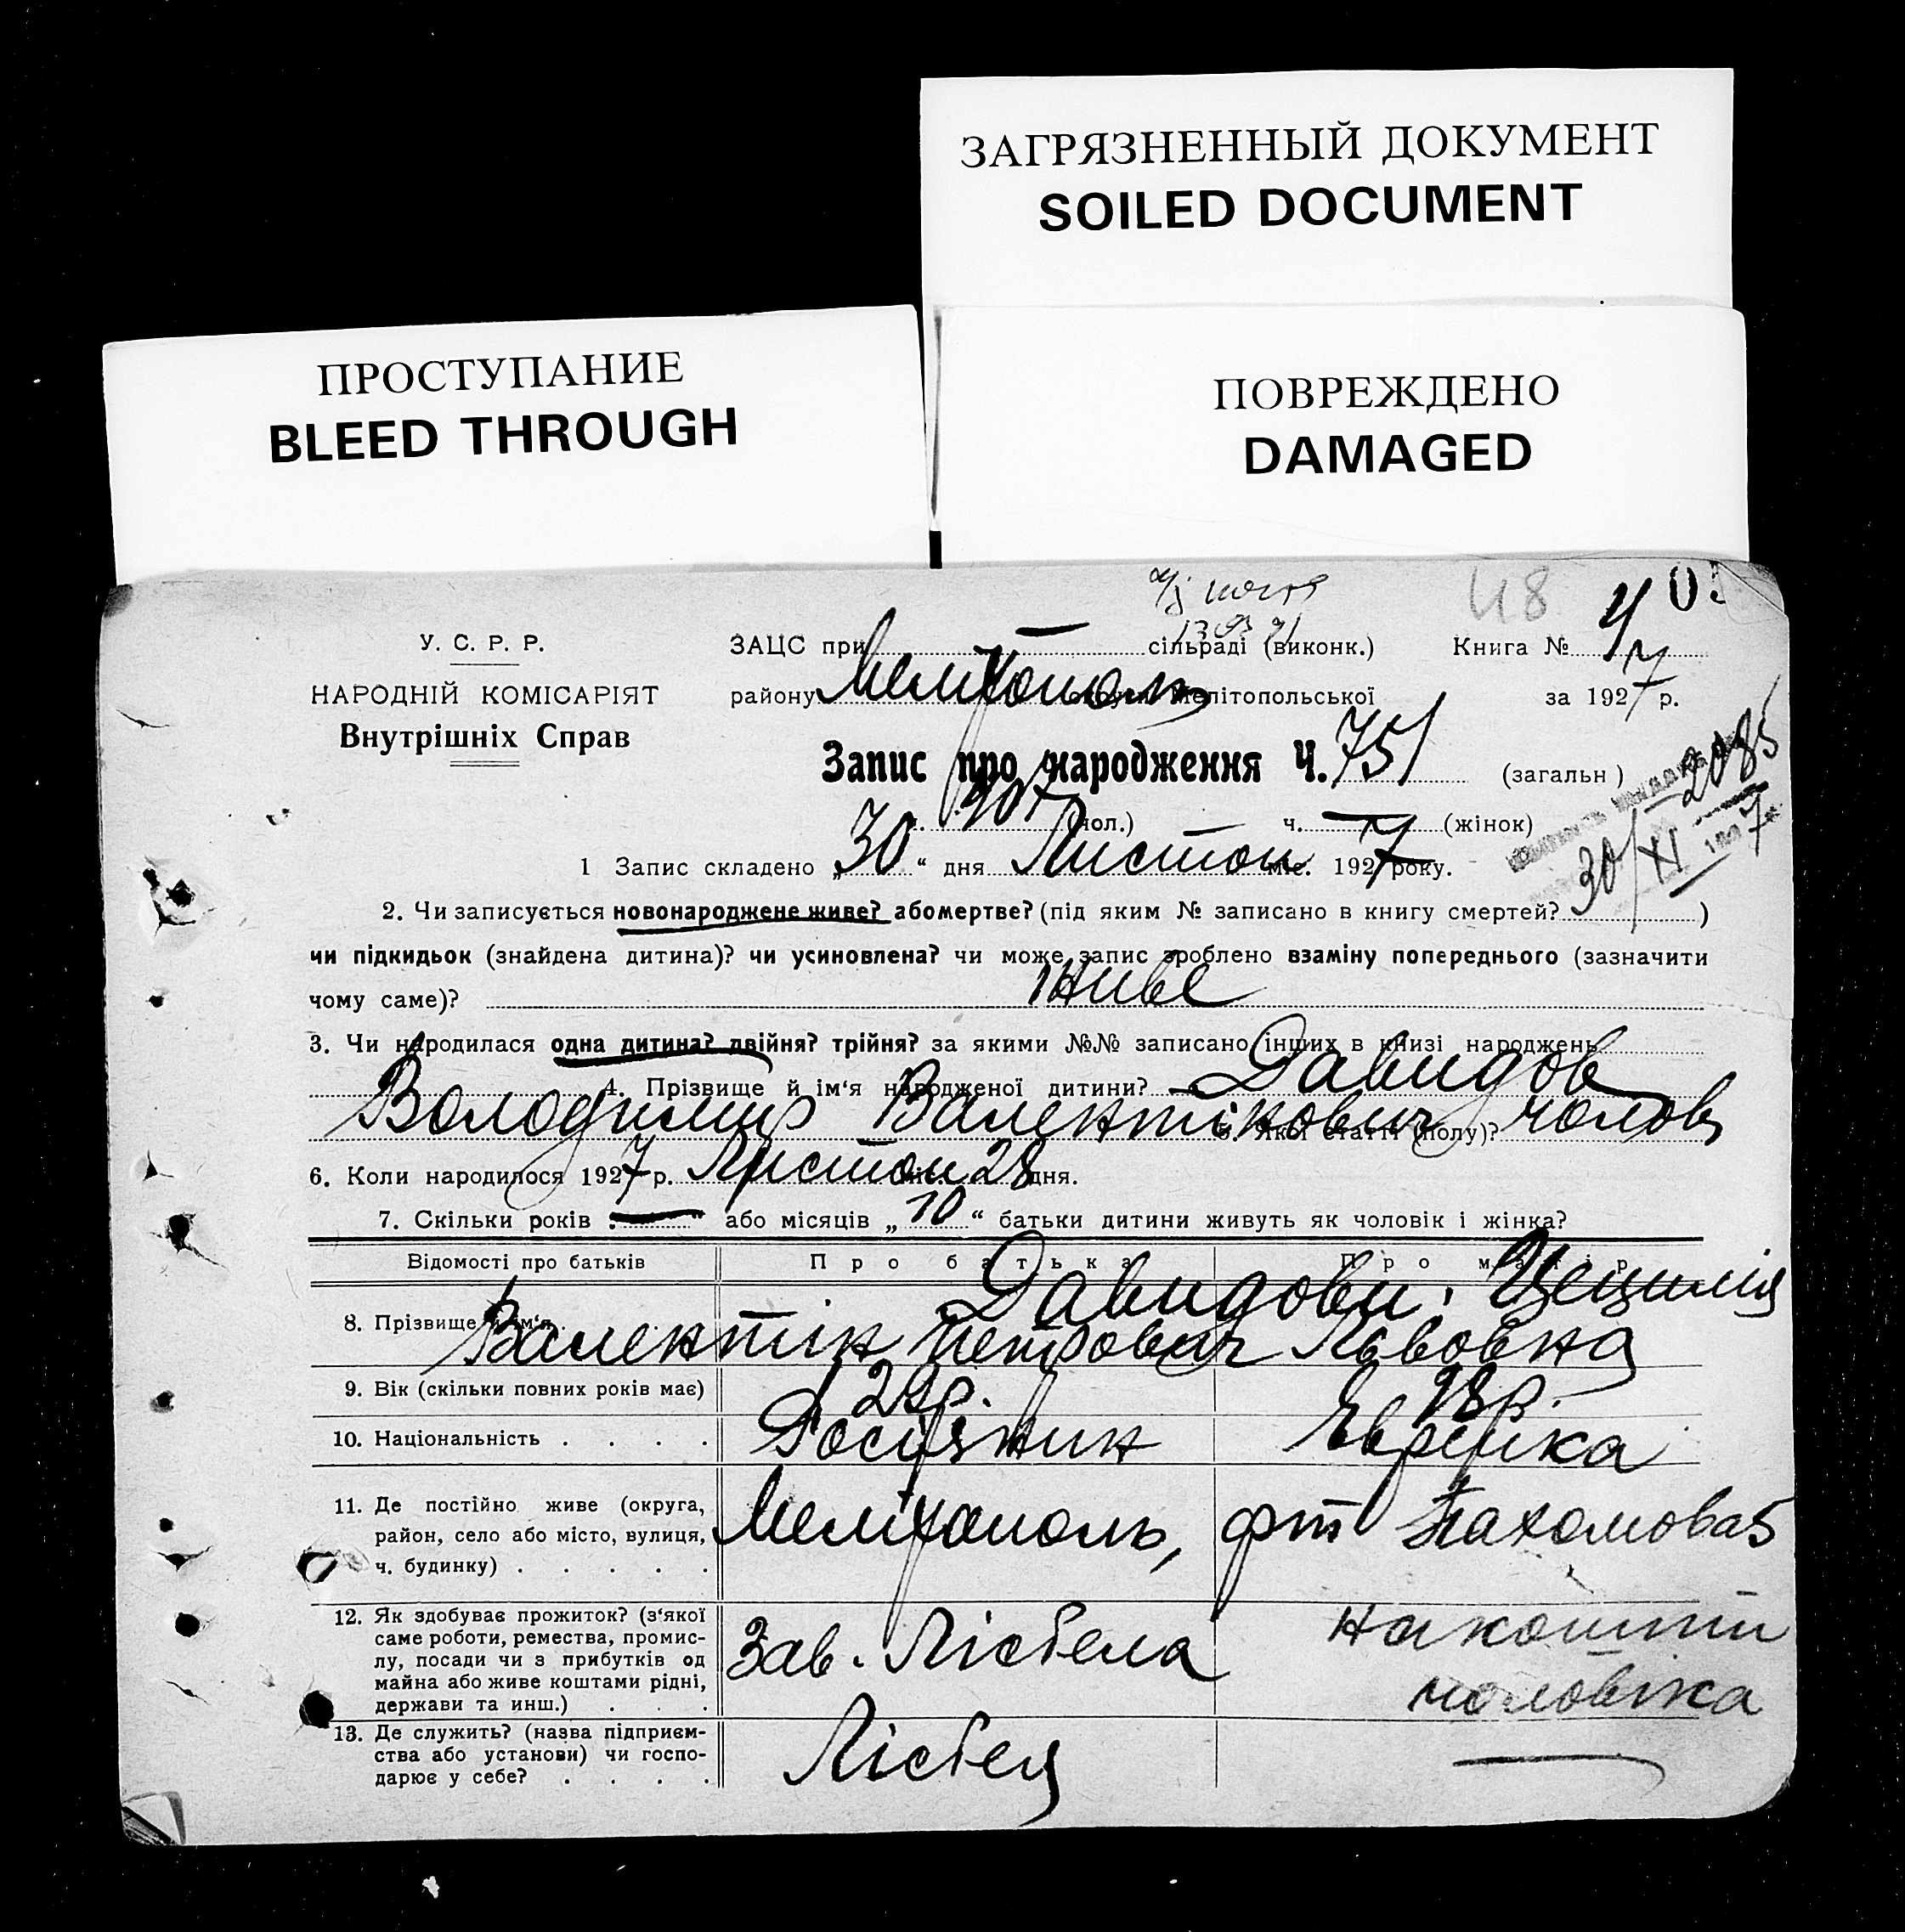 ЗАГРЯЗНЕННЫЙ ДОКУМЕНТ
SOILED DOCUMENT
ПРОСТУПАНИЕ
BLEED THROUGH
ПОВРЕЖДЕНО
DAMAGED
48
У. С. Р. Р.
НАРОДНІЙ КОМІСАРІЯТ
Внутрішніх Справ
ЗАЦС при сільраді (виконк.) Книга № 4/7
району Мелітополь округи Мелітопольської за 1927 р.
Запис про народження Ч. 751 (загальн)
2085
(чол.) ч. — (жінок)
30/XI 7
1 Запис складено „30“ дня Листоп міс. 1927 року.
2. Чи записується новонароджене живе? або мертве? (під яким № записано в книгу смертей? )
чи підкидьок (знайдена дитина)? чи усиновлена? чи може запис зроблено взаміну попереднього (зазначити
чому саме)? Живе
3. Чи народилася одна дитина? двійня? трійня? за якими №№ записано інших в книзі народжень
4. Прізвище й ім‘я народженої дитини? Давидов
Володимир Валентінович 5. Якої статті (полу)? чолов
6. Коли народилося 1927 р. Листоп міс. 28 дня.
7. Скільки років „—“ або місяців „10“ батьки дитини живуть як чоловік і жінка?
Відомості про батьків Про батька Про матір
8. Прізвище й ім‘я Давидови: Цецилія
Валентін Петрович Львовна
9. Вік (скільки повних років має) 29р. 28р.
10. Національність . . . . Росіянин Еврейка
11. Де постійно живе (округа,
район, село або місто, вулиця,
ч. будинку) . . . . .
Мелітополь, Пахомова 5
12. Як здобуває прожиток? (з‘якої
саме роботи, ремества, промис-
лу, посади чи з прибутків од
майна або живе коштами рідні,
держави та инш.) . . .
Зав. на кошти
чоловіка
13. Де служить? (назва підприєм-
ства або установи) чи госпо-
дарює у себе? . . . .